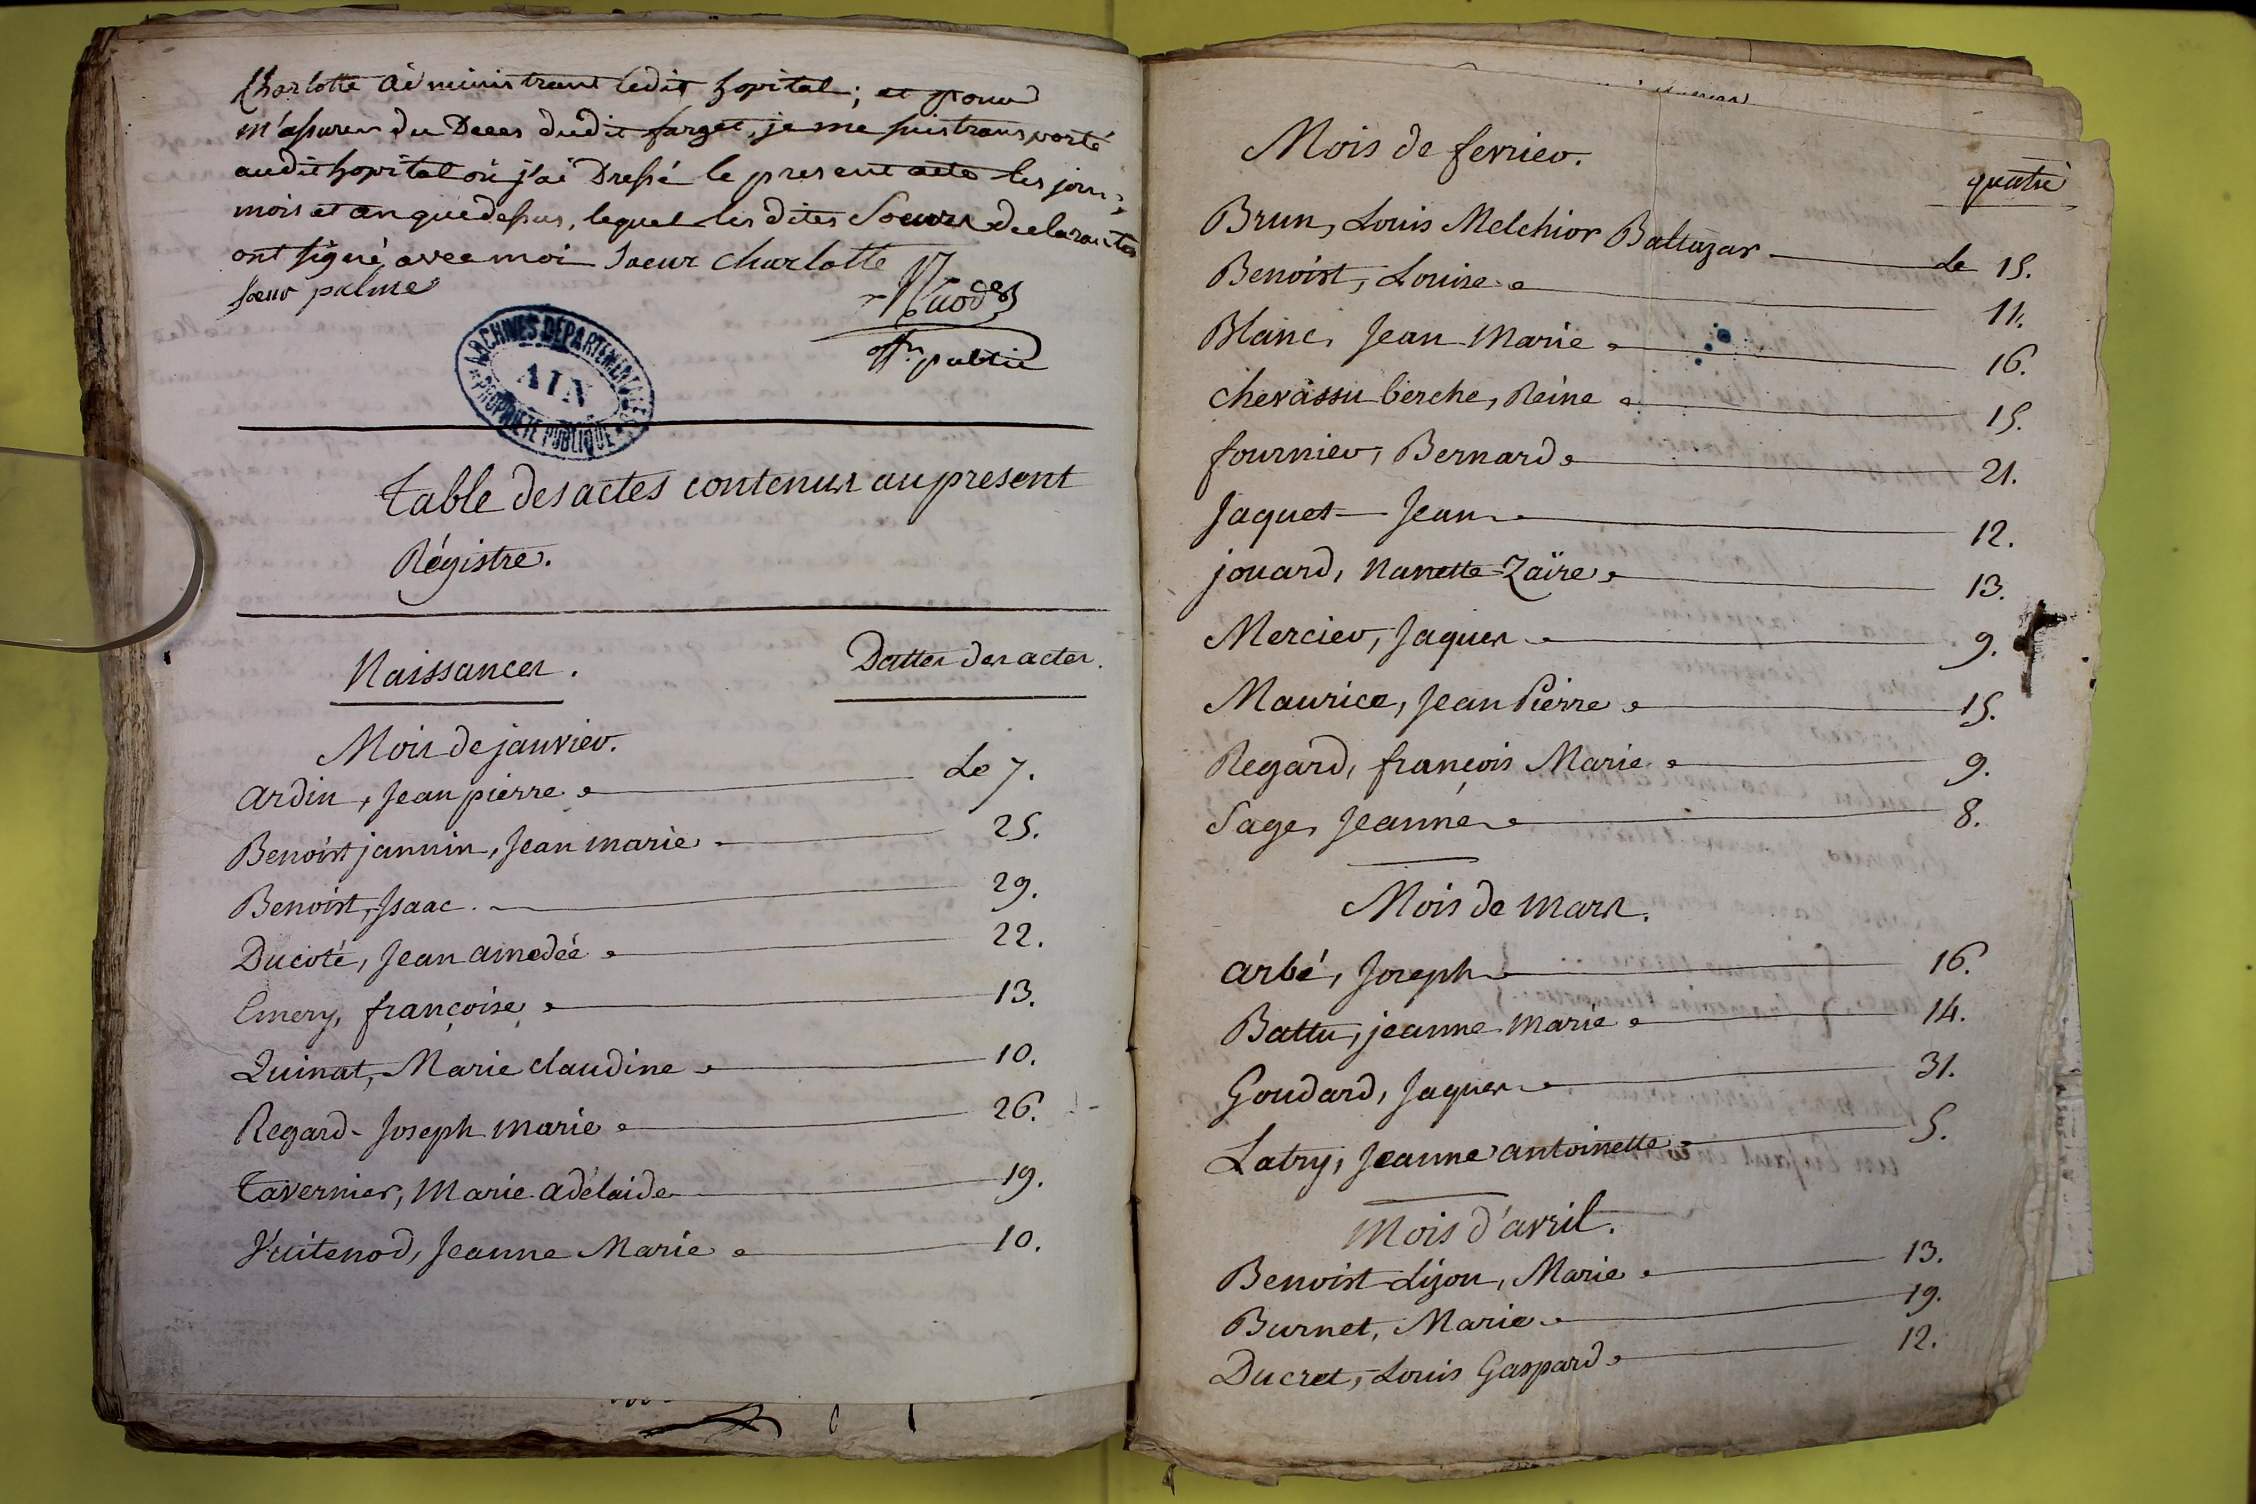 Charlotte administrant ledit hopital; et pour
m'assurer du Deces dudit farget, je me suis transporté
audit hopital où j'ai Dressé le present acte les jour,
mois et an que dessus, lequel les dites Soeurs declarantes
ont signé avec moi Soeur Charlotte
soeur palme
offr. public
ARCHIVES DEPARTEMENTALES
AIN
PROPRIETE PUBLIQUE
Table des actes contenus au present
Régistre.
Naissances. Dattes des actes.
Mois de janvier.
Ardin, Jean pierre Le 7.
Benoist jannin, Jean marie 25.
Benoist, Isaac 29.
Ducoté, Jean amedée 22.
Emery, françoise 13.
Quinat, Marie claudine 10.
Regard Joseph marie 26.
Tavernier, Marie adélaide 19.
Vuitenod, Jeanne Marie 10.
quatre
Mois de fevrier.
Brun, Louis Melchior Baltazar Le 15.
Benoist, Louise 11.
Blanc, Jean Marie 16.
Chevassu berche, Reine 15.
fournier, Bernard 21.
Jaquet Jean 12.
jouard, Nanette Zaïre 13.
Mercier, Jaques 9.
Maurice, Jean Pierre 15.
Regard, françois Marie 9.
Sage, Jeanne 8.
Mois de mars.
Arbé, Joseph 16.
Battu, jeanne marie 14.
Goudard, Jaques 31.
Latry, Jeanne antoinette 5.
Mois d'avril.
Benoist Lizon, Marie 13.
Burnet, Marie 19.
Ducret, Louis Gaspard 12.